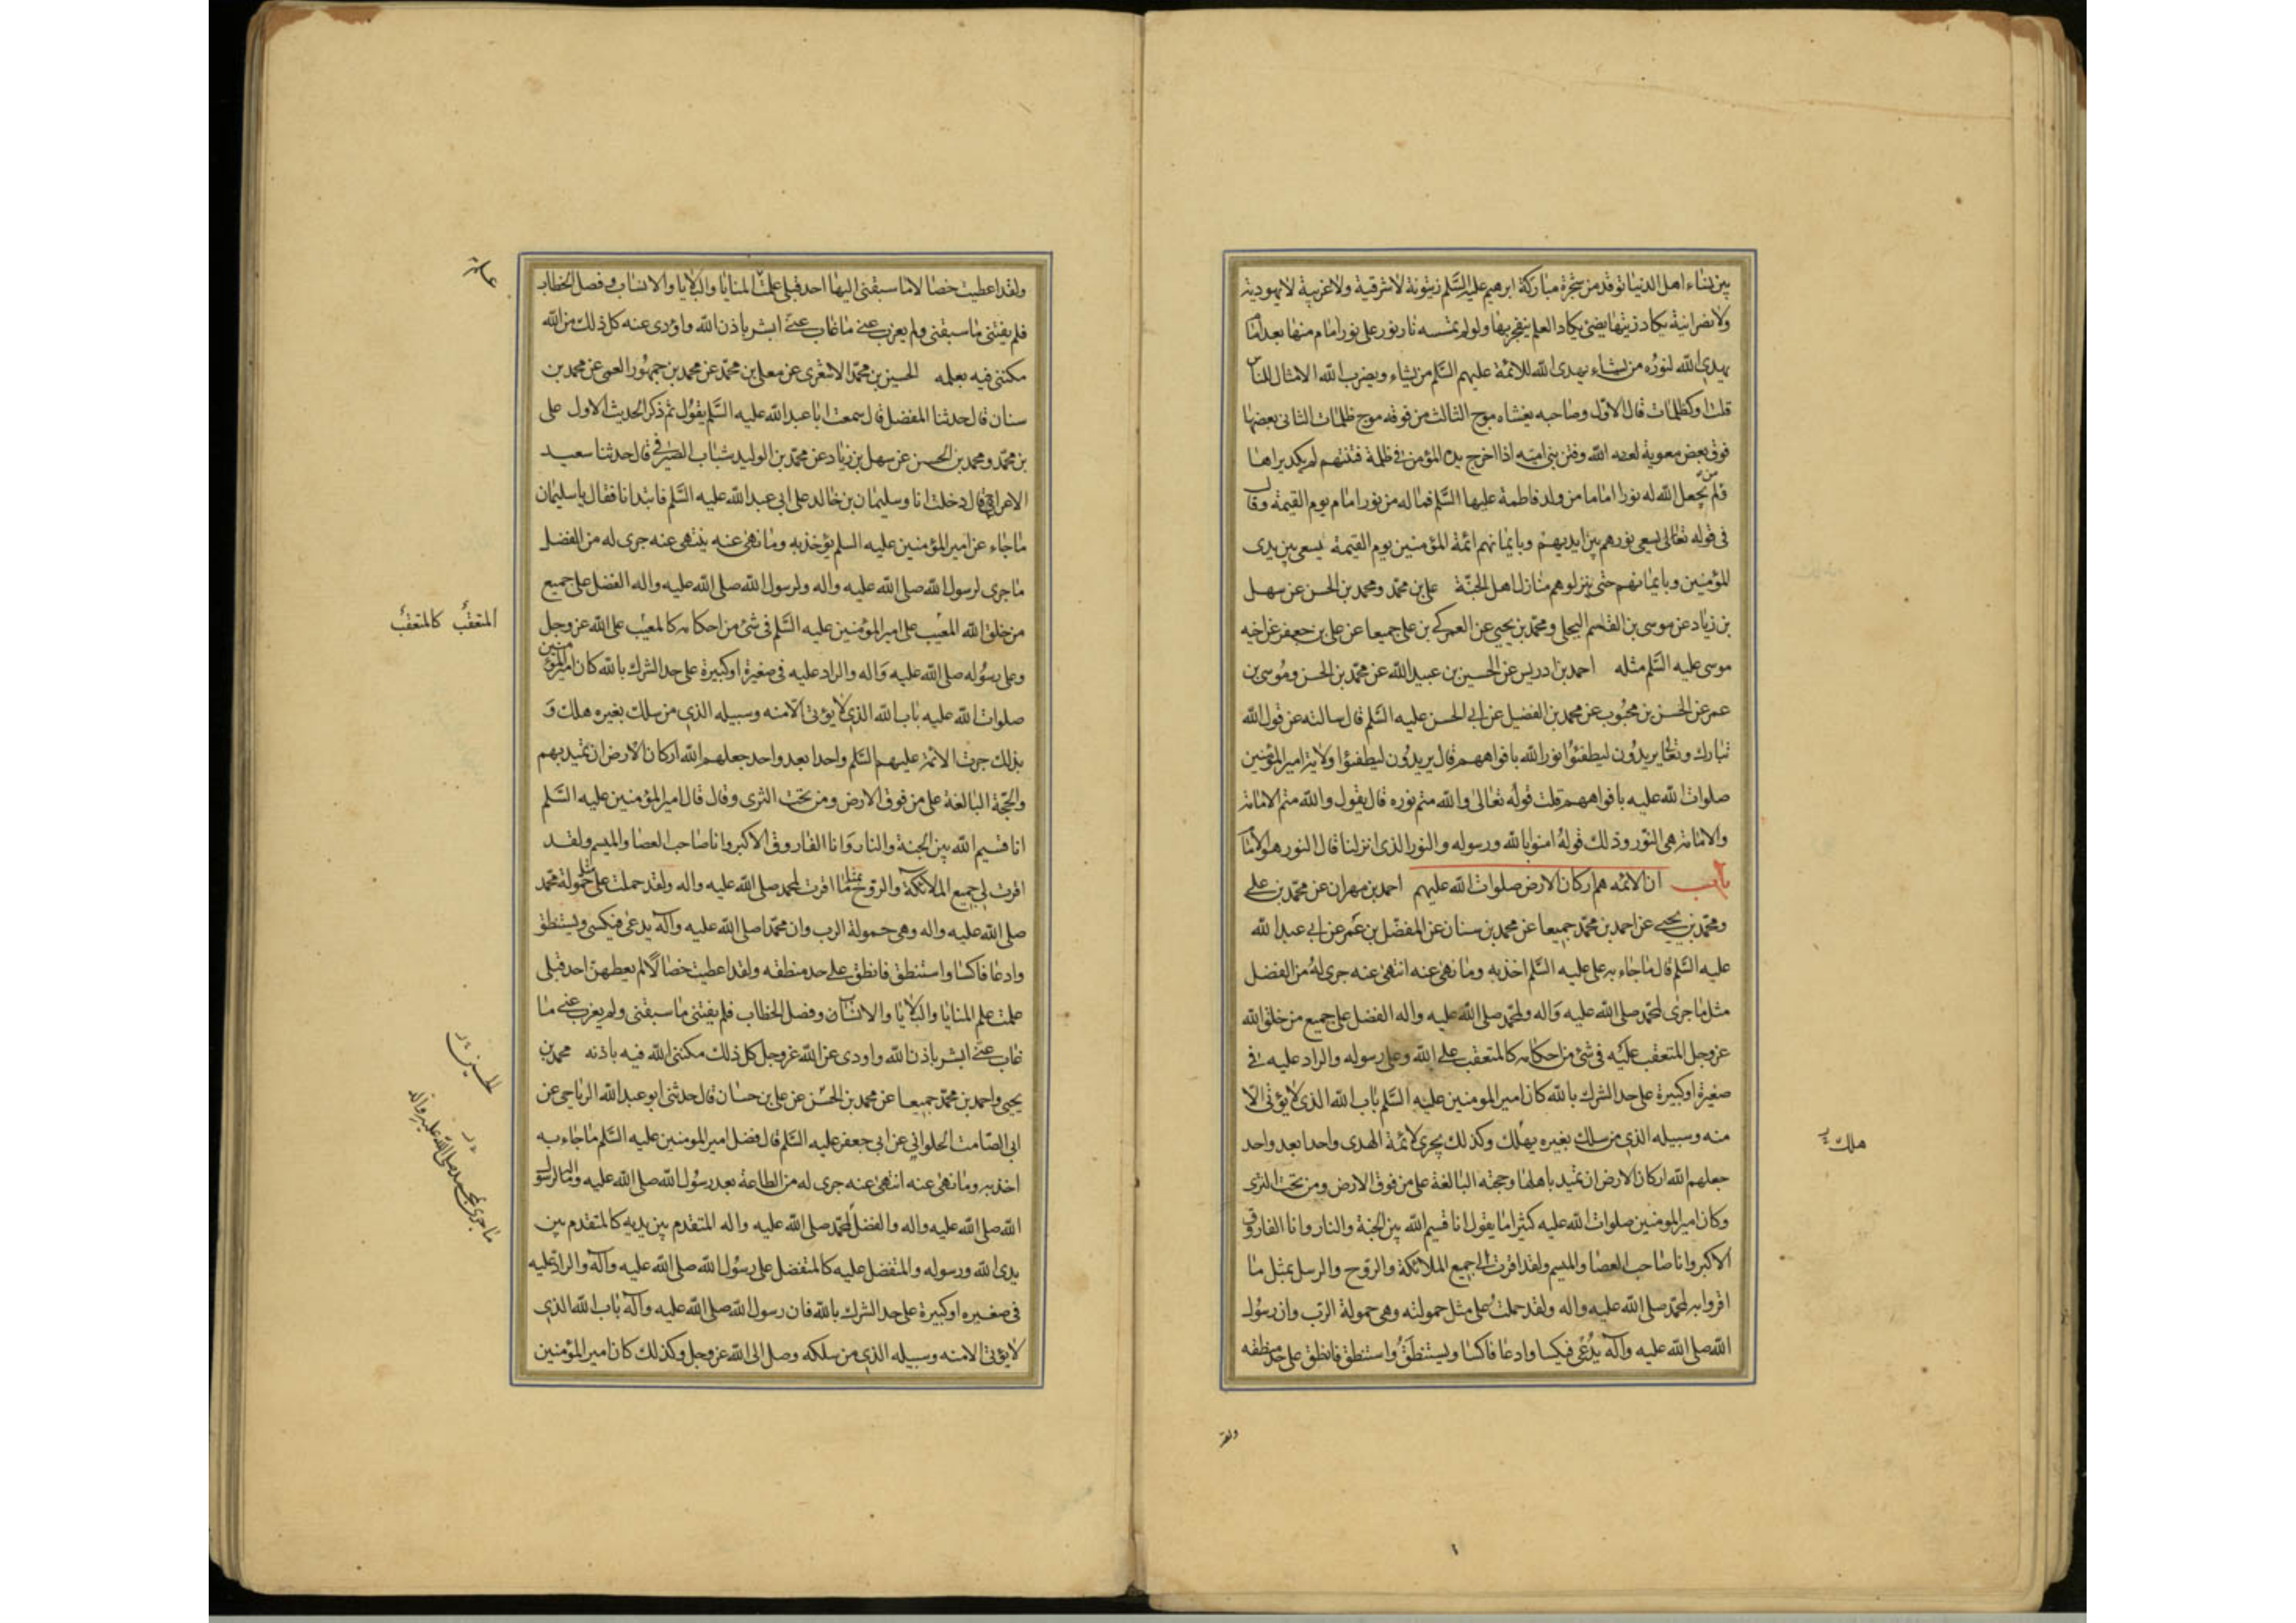 بين نساء اهل الدنيا توقد من شجرة مباركة ابرهيم عليه السّلم زيتونة لا شرقية ولا غربية لا يهودية
ولا نصرانية يكاد زيتها يضئ يكاد العلم ينفجر بها ولو لم تمسسه نار نور على نور امام منها بعد امام
يهدى الله لنوره من يشاء يهدى الله للائمة عليهم السّلم من يشاء ويضرب الله الامثال للناس
قلت او كظلمات قال الاوّل وصاحبه يغشاه موج الثالث من فوقه موج ظلمات الثانى بعضها
فوق بعض معوية لعنه الله وفتن بنى اميّه اذا اخرج يده المؤمن فى ظلمة فتنتهم لم يكد يراها
ومن لم يجعل الله له نورا اماما من ولد فاطمة عليها السّلم فما له من نور امام يوم القيمة وقال
فى قوله تعالى يسعى نورهم بين ايديهم وبايمانهم ائمة المؤمنين يوم القيمة يسعى بين يدى
المؤمنين وبايمانهم حتى ينزلوهم منازل اهل الجنّة على بن محمّد ومحمد بن الحسن عن سهل
بن زياد عن موسى بن القاسم البجلى ومحمّد بن يحيى عن العمركى بن على جميعا عن على بن جعفر عن اخيه
موسى عليه السّلم مثله احمد بن ادريس عن الحسين بن عبيد الله عن محمّد بن الحسن وموسى بن
عمر عن الحسن بن محبوب عن محمد بن الفضيل عن ابى الحسن عليه السّلم قال سالته عن قول الله
تبارك وتعالى يريدون ليطفئوا نور الله بافواههم قال يريدون ليطفئوا ولاية امير المؤمنين
صلوات الله عليه بافواههم قلت قوله تعالى والله متم نوره قال يقول والله متم الامامة
والامامة هى النّور وذلك قوله امنوا بالله ورسوله والنور الذى انزلنا قال النور هو الامام
باب ان الائمه هم اركان الارض صلوات الله عليهم احمد بن مهران عن محمّد بن على
ومحمّد بن يحيى عن احمد بن محمّد جميعا عن محمد بن سنان عن المفضّل بن عمر عن ابى عبد الله
عليه السّلم قال ما جاء به على عليه السّلم اخذ به وما نهى عنه انتهى عنه جرى له من الفضل
مثل ما جرى لمحمّد صلى الله عليه واله ولمحمّد صلى الله عليه واله الفضل على جميع من خلق الله
عز وجل المتعقب عليه فى شئ من احكامه كالمتعقب على الله وعلى رسوله والراد عليه فى
صغيرة او كبيرة على حد الشرك بالله كان امير المومنين عليه السّلم باب الله الذى لا يؤتى الا
منه وسبيله الذى من سلك بغيره يهلك وكذلك يجرى لائمة الهدى واحدا بعد واحد
جعلهم الله اركان الارض ان تميد باهلها وحجته البالغة على من فوق الارض ومن تحت الثرى
وكان امير المومنين صلوات الله عليه كثيرا ما يقول انا قسيم الله بين الجنة والنار وانا الفاروق
الاكبر وانا صاحب العصا والميسم ولقد اقرت لى جميع الملائكة والروح والرسل بمثل ما
اقروا به لمحمّد صلى الله عليه واله ولقد حملت على مثل حمولته وهى حمولة الرّب وان رسول
الله صلى الله عليه واله يدعى فيكسا وادعا فاكسا ويستنطق واستنطق فانطق على حد منطقه
هلك
ولقد
ولقد اعطيت خصالا ما سبقنى اليها احد قبلى علمت المنايا والبلايا والانساب وفصل الخطاب
فلم يفتنى ما سبقنى ولم يعزب عنى ما غاب عنى ابشر باذن الله واؤدى عنه كل ذلك من الله
مكننى فيه بعلمه الحسين بن محمّد الاشعرى عن معلى بن محمّد عن محمد بن جمهور العمى عن محمد بن
سنان قال حدثنا المفضل قال سمعت ابا عبد الله عليه السّلم يقول ثم ذكر الحديث الاول على
بن محمّد ومحمد بن الحسن عن سهل بن زياد عن محمّد بن الوليد شباب الصيرفى قال حدثنا سعيد
الاعرج قال دخلت انا وسليمان بن خالد على ابى عبد الله عليه السّلم فابتدانا فقال يا سليمان
ما جاء عن امير المؤمنين عليه السلم يؤخذ به وما نهى عنه ينتهى عنه جرى له من الفضل
ما جرى لرسول الله صلى الله عليه واله ولرسول الله صلى الله عليه واله الفضل على جميع
من خلق الله المعيّب على امير المؤمنين عليه السّلم فى شئ من احكامه كالمعيّب على الله عز وجل
وعلى رسوله صلى الله عليه واله والراد عليه فى صغيرة او كبيرة على حد الشرك بالله كان امير المؤمنين
صلوات الله عليه باب الله الذى لا يؤتى الا منه وسبيله الذى من سلك بغيره هلك و
بذلك جرت الائمة عليهم السّلم واحدا بعد واحد جعلهم الله اركان الارض ان تميد بهم
والحجّة البالغة على من فوق الارض ومن تحت الثرى وقال قال امير المؤمنين عليه السّلم
انا قسيم الله بين الجنة والنار وانا الفاروق الاكبر وانا صاحب العصا والميسم ولقد
اقرت لى جميع الملائكة والروح بمثل ما اقرت لمحمد صلى الله عليه واله ولقد حملت على مثل حمولة محمّد
صلى الله عليه واله وهى حمولة الرب وان محمّدا صلى الله عليه واله يدعى فيكسى ويستنطق
وادعا فاكسا واستنطق فانطق على حد منطقه ولقد اعطيت خصالا لم يعطهن احد قبلى
علمت علم المنايا والبلايا والانساب وفصل الخطاب فلم يفتنى ما سبقنى ولم يعزب عنى ما
غاب عنى ابشر باذن الله واودى عن الله عز وجل كل ذلك مكننى الله فيه باذنه محمد بن
يحيى واحمد بن محمّد جميعا عن محمد بن الحسن عن على بن حسان قال حدثنى ابو عبد الله الرياحى عن
ابى الصّامت الحلوانى عن ابى جعفر عليه السّلم قال فضل امير المومنين عليه السّلم ما جاء به
اخذ به وما نهى عنه انتهى عنه جرى له من الطاعة بعد رسول الله صلى الله عليه واله ما لرسول
الله صلى الله عليه واله والفضل لمحمّد صلى الله عليه واله المتقدم بين يديه كالمتقدم بين
يدى الله ورسوله والمتفضل عليه كالمتفضل على رسول الله صلى الله عليه واله والراد عليه
فى صغيره او كبيرة على حد الشرك بالله فان رسول الله صلى الله عليه واله باب الله الذى
لا يؤتى الا منه وسبيله الذى من سلكه وصل الى الله عز وجل وكذلك كان امير المؤمنين
المتعقب كالمتعقب
الحسين
ما جرى لمحمد صلى الله عليه واله